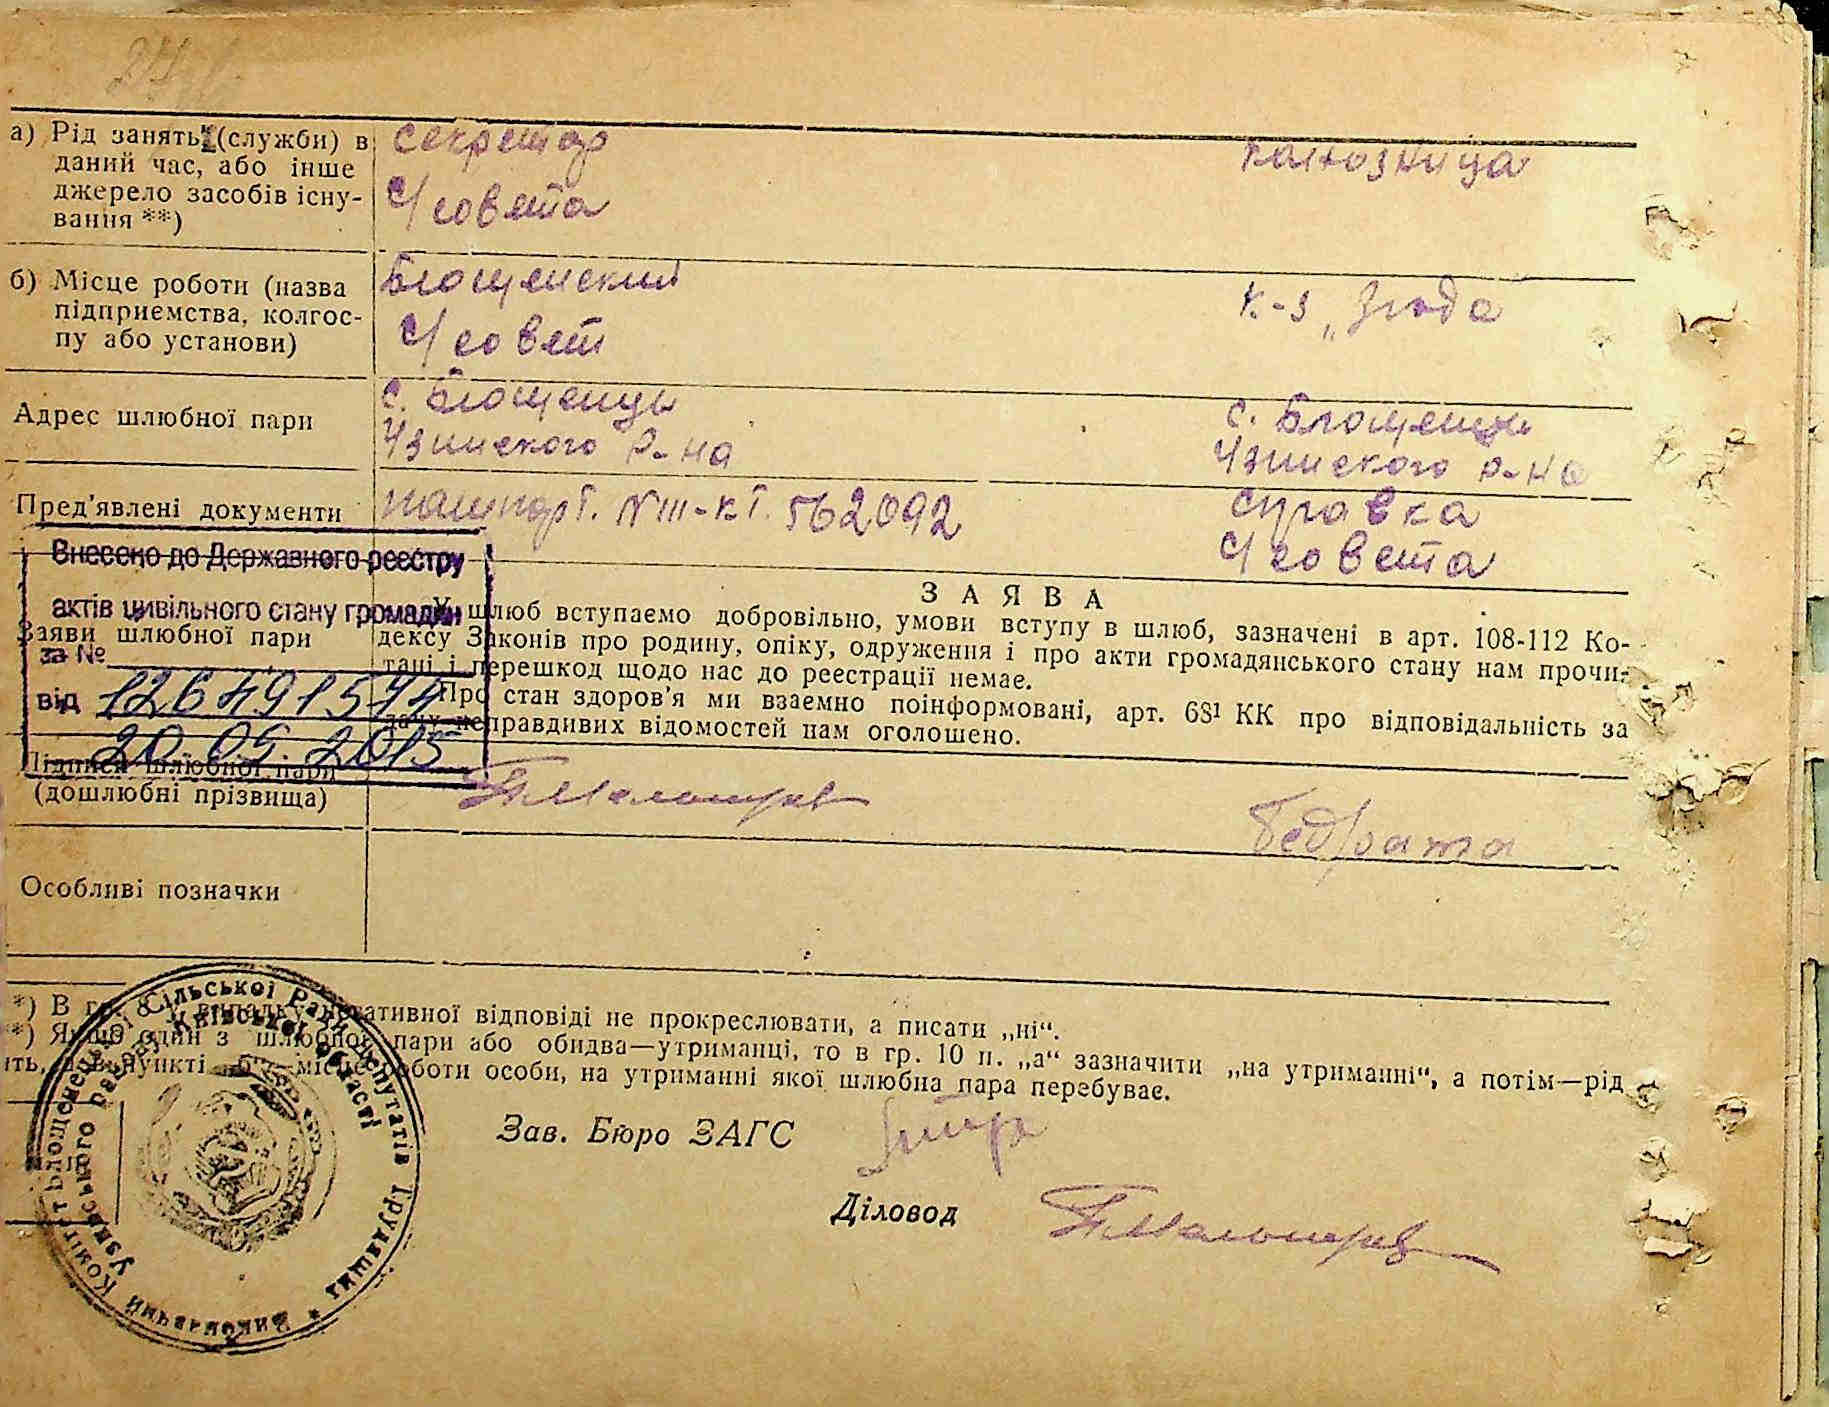 а) Рід занять (службы) в
даний час, або інше
джерело засобів існу-
вання **)
секретар
с/совета
калхозница
б) Місце роботи (назва
підприємства, колгос-
пу або установи)
Блощенский
с/совет
к-з „Згода
Адрес шлюбної пари
с. Блощенцы
Узинского р-на
с. Блощенцы
Узинского р-на
Пред'явлені документи
пашпорт. № III-КТ. 562092
справка
с/совета
Внесено до Державного реєстру
актів цивільного стану громадян
за №
від 12649157
20.05.2015
Заяви шлюбної пари
ЗАЯВА
У шлюб вступаємо добровільно, умови вступу в шлюб, зазначені в арт. 108-112 Ко-
дексу Законів про родину, опіку, одруження і про акти громадянського стану нам прочи-
тані і перешкод щодо нас до реєстрації немає.
Про стан здоров'я ми взаємно поінформовані, арт. 68¹ КК про відповідальність за
дачу неправдивих відомостей нам оголошено.
Підписи шлюбної пари
(дошлюбні прізвища)
Бедрата
Особливі позначки
*) В гр. 8 у випадку негативної відповіді не прокреслювати, а писати „ні“.
**) Якщо один з шлюбної пари або обидва—утриманці, то в гр. 10 п. „а“ зазначити „на утриманні“, а потім—рід
місце роботи особи, на утриманні якої шлюбна пара перебуває.
Зав. Бюро ЗАГС
Діловод
Виконавчий Комітет Блощенецької Сільської Ради Депутатів Трудящих *
Узинського району Київської області